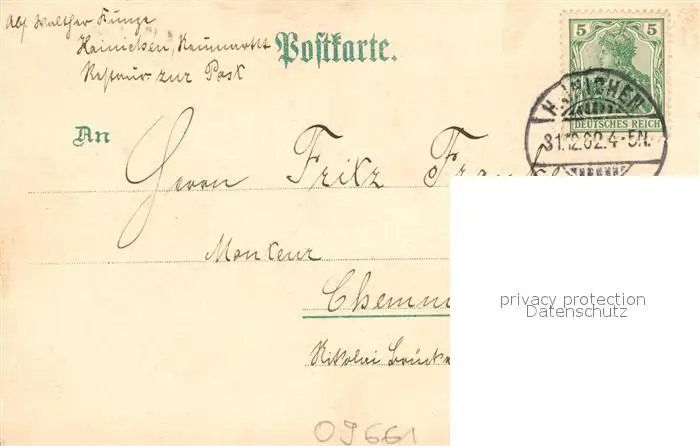 Abs. Walther Kunze
Hainichen, Neumarkt
Restaur. zur Post
Postkarte.
5 5
DEUTSCHES REICH
HAINICHEN
31.12.02. 4-5N.
An
Herrn Fritz
Monteur
Chemn
Nikolai
privacy protection
Datenschutz
09661